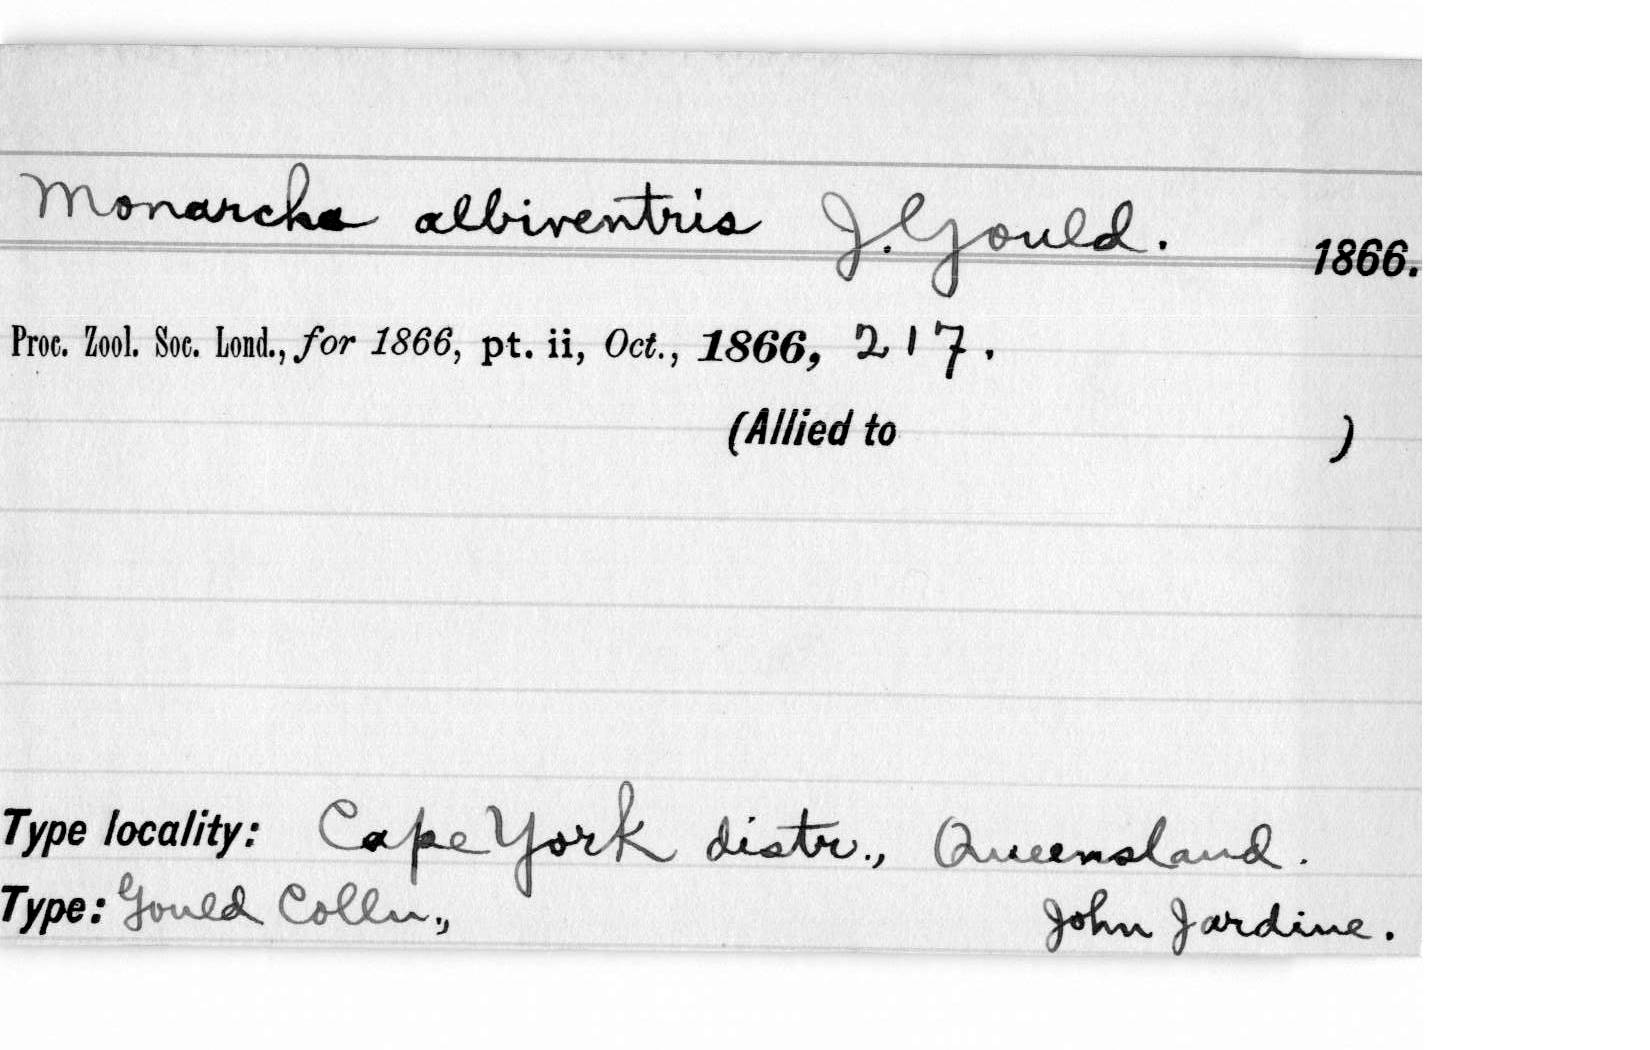 Monarcha albiventris J. Gould. 1866.
Proc. Zool. Soc. Lond., for 1866, pt. ii, Oct., 1866, 217.
(Allied to )
Type locality: Cape York distr., Queensland.
Type: Gould Colln., John Jardine.